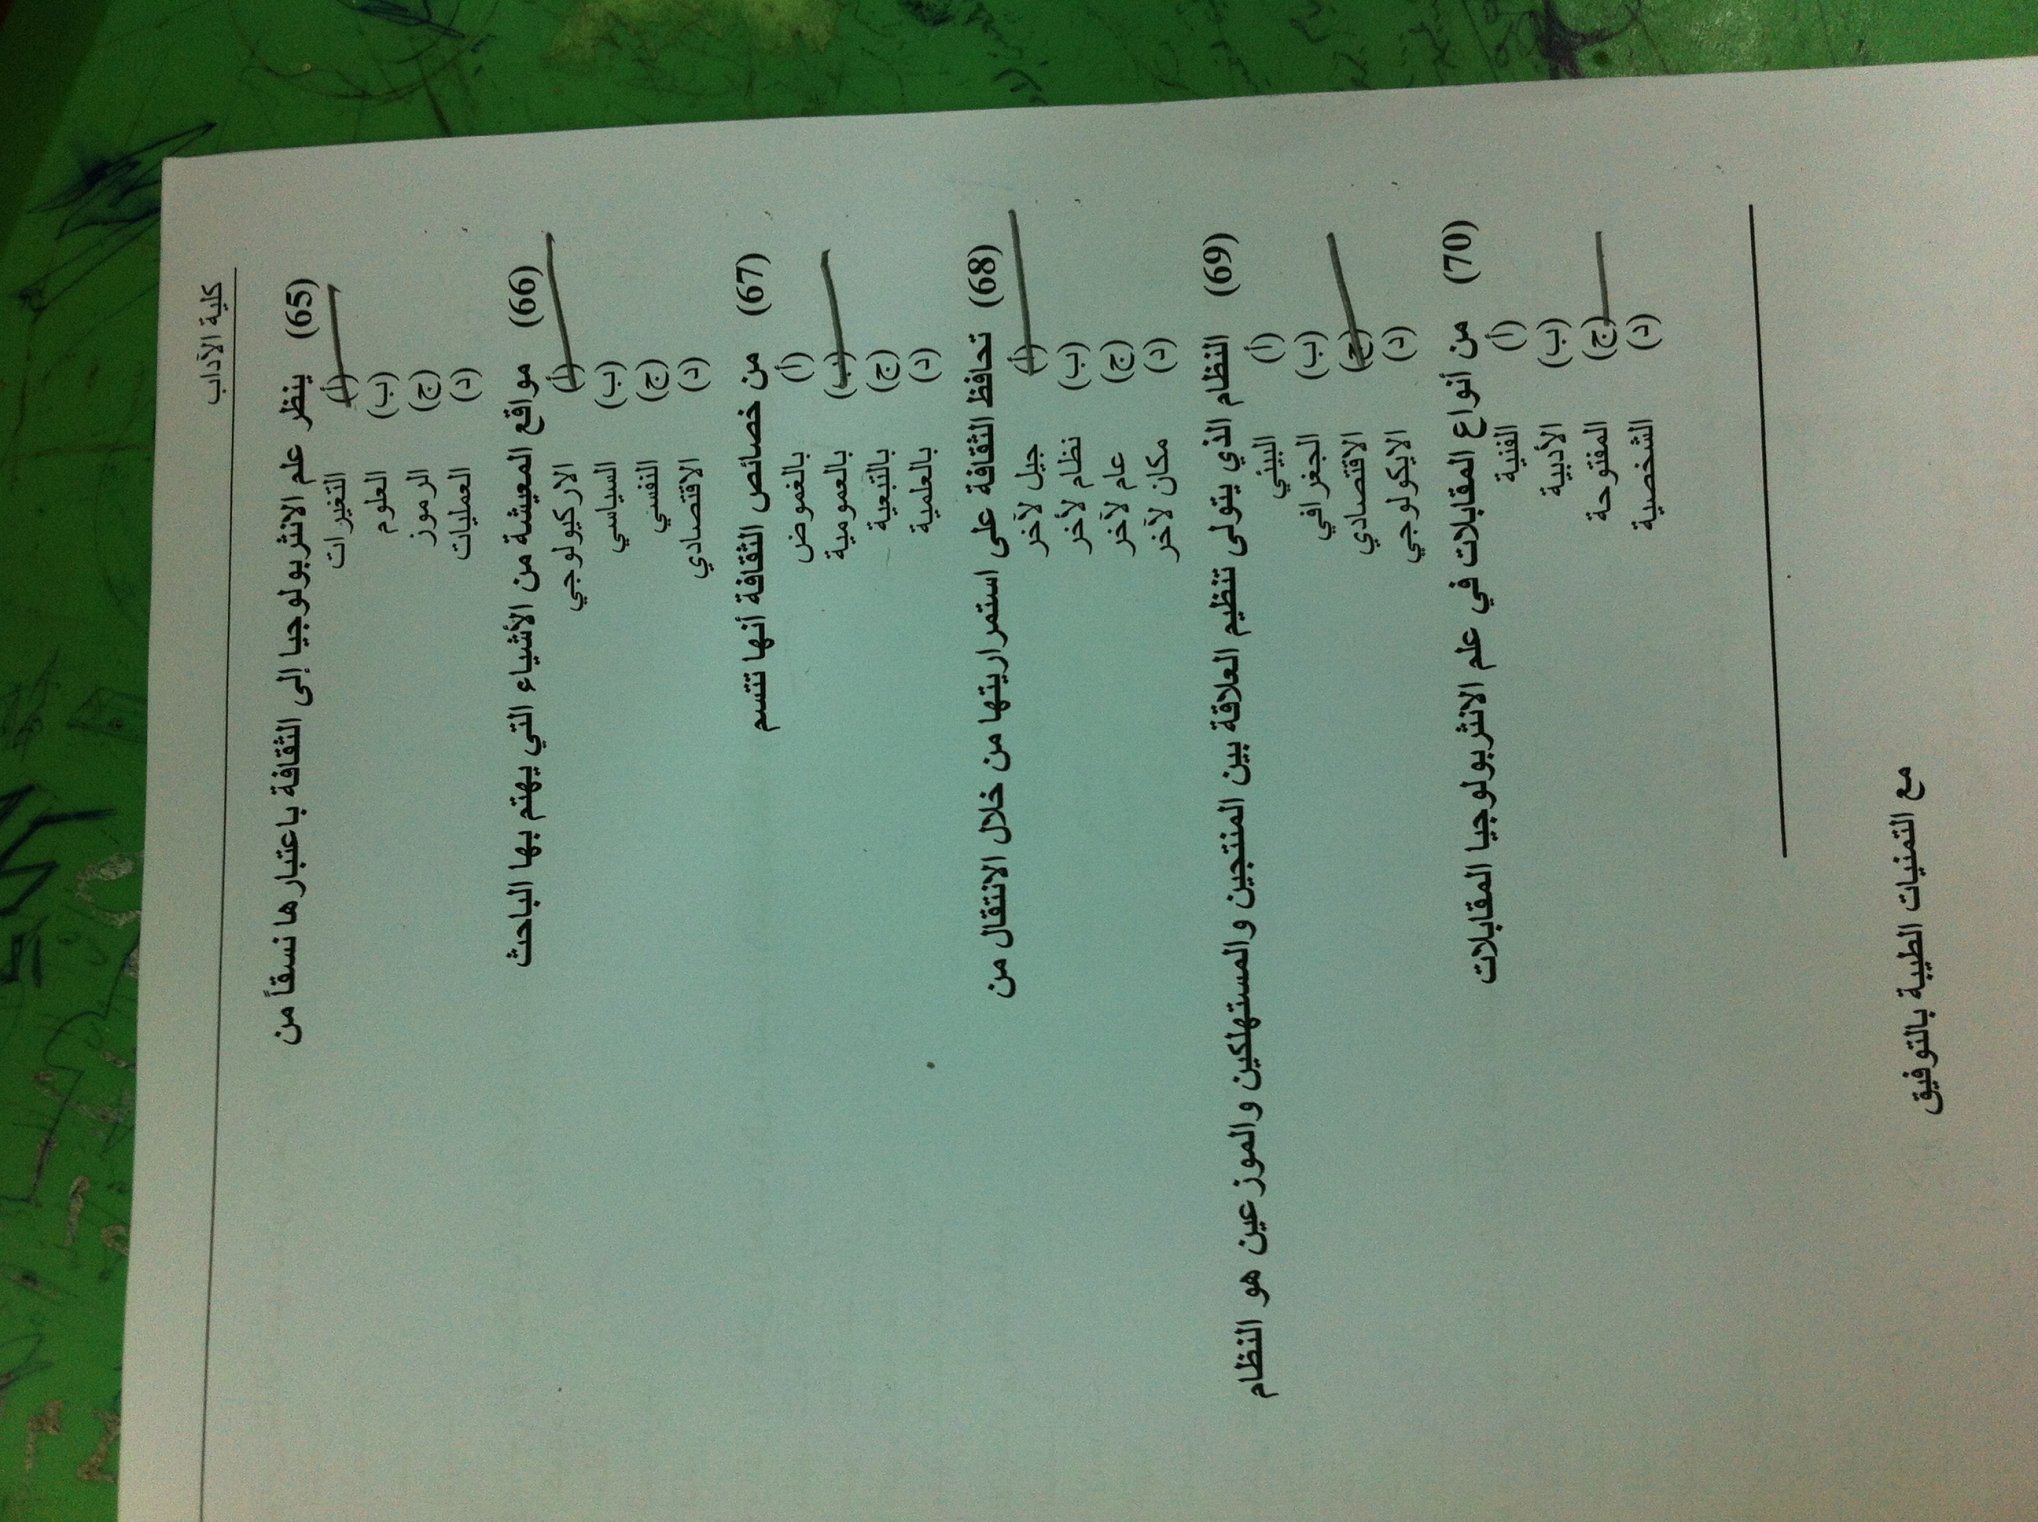 كلية الآداب
(65) ينظر علم الانثربولوجيا إلى الثقافة باعتبارها نسقاً من
(أ) التغيرات
(ب) العلوم
(ج) الرموز
(د) العمليات
(66) مواقع المعيشة من الأشياء التي يهتم بها الباحث
(أ) الاركيولوجي
(ب) السياسي
(ج) النفسي
(د) الاقتصادي
(67) من خصائص الثقافة أنها تتسم
(أ) بالغموض
(ب) بالعمومية
(ج) بالتبعية
(د) بالعلمية
(68) تحافظ الثقافة على استمراريتها من خلال الانتقال من
(أ) جيل لآخر
(ب) نظام لأخر
(ج) عام لآخر
(د) مكان لآخر
(69) النظام الذي يتولى تنظيم العلاقة بين المنتجين والمستهلكين والموزعين هو النظام
(أ) البيئي
(ب) الجغرافي
(ج) الاقتصادي
(د) الايكولوجي
(70) من أنواع المقابلات في علم الانثربولوجيا المقابلات
(أ) الفنية
(ب) الأدبية
(ج) المفتوحة
(د) الشخصية
مع التمنيات الطيبة بالتوفيق